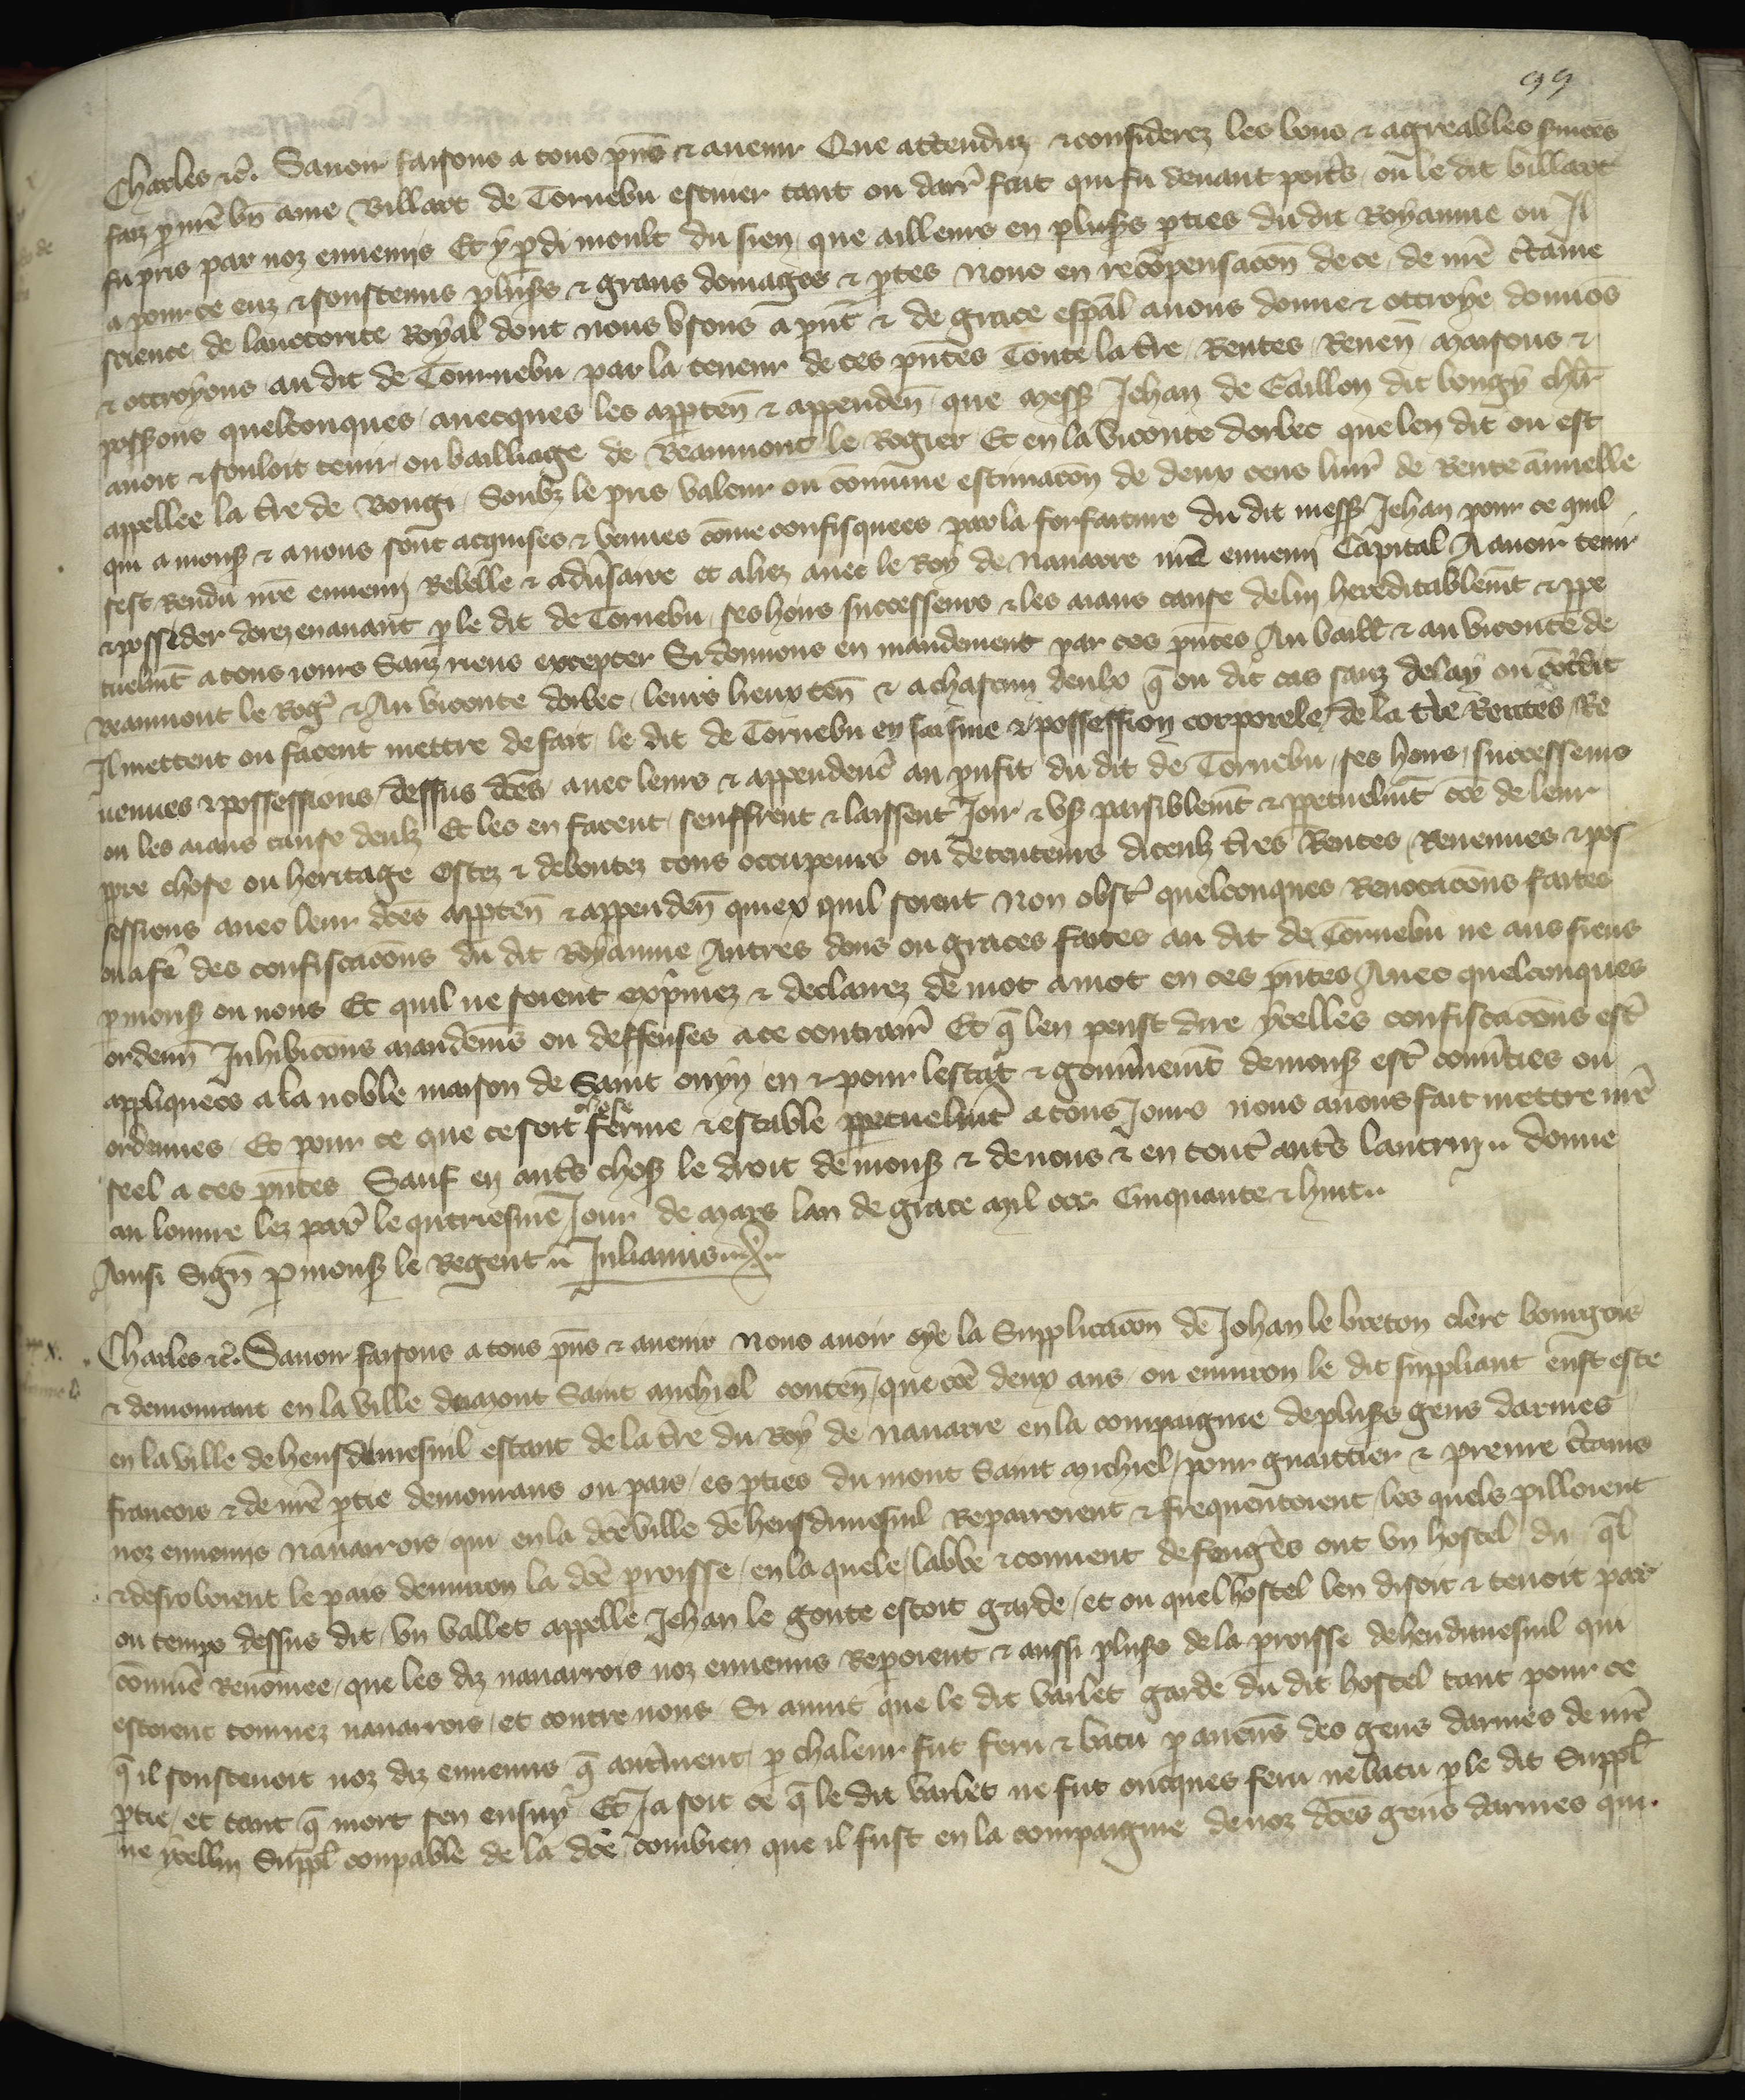 99
Charles etc. Sauoir faisons a tous pñs & auenir Que attenduz & considerez les bons & agreables seruices
faiz p nrē bn̄ ame Billart de Tornebu escuier tant ou darr̄ fait qui fu deuant poit̄s ou le dit billart
fu pris par noz ennemis Et y pdi moult du sien que ailleurs en plus̄s pties du dit Royaume ou Il
a pour ce euz & soustenus plus̄s & grans domages & ptes Nous en recōpensacōn de ce de nrē c̄taine
science de lauctorite Royal dont nous vsons a pn̄t & de grace esp̄al auons donne & ottroye donnōs
& ottroyons au dit de Tournebu par la teneur de ces pn̄tes Toute la t̄re Rentes Reuen̄ maisons &
poss̄ons quelconques auecques les apptēn & appendēn que mess̄ Jehan de Gaillon dit bougy chl̄r
auoit & souloit tenir ou bailliage de Beaumont le Rogier Et en la viconte dorbec que len dit ou est
appellee la t̄re de Bougi Soubz le pris valeur ou cōmune estimacōn de deux cens liur̄ de Rente ānuelle
qui a mons̄ & a nous sont acquises & venues cōme confisquees par la forfaiture du dit mess̄ Jehan pour ce quil
sest Rendu nrē ennemi Rebelle & adūsaire et aliez auec le Roy de Nauarre nrē ennemi Capital A auoir tenir
& possider dorez en auant p le dit de Tornebu ses hoirs successeurs & les aians cause de luy hereditablemt̄ & ppe
tuelmt̄ a tous iours Sanz riens excepter Si donnons en mandement par ces pn̄tes Au baill̄ & au viconte de
Beaumont le Roḡ & Au viconte dorbec leurs lieux tēn & a chascun deulx q̄ ou dit cas sanz delay ou cōtdit
Il mettent ou facent mettre de fait le dit de Tornebu en saisine & possession corporele de la t̄re Rentes Re
uenues & possessions dessus dc̄es auec leurs & appendenc̄ au prufit du dit de Tornebu ses hoirs successeurs
ou les aians cause deulz Et les en facent seuffrent & laissent Joir & vs̄ paisiblemt̄ & ppetuelmt̄ cōe de leur
ppre chose ou heritage Ostez & deboutez tous occupeurs ou detenteurs diceulz t̄res Rentes Reuenues & pos
sessions auec leur dc̄es apptēn & appendēn quiex quil soient Non obst̄ quelconques Reuocacōns faites
ou a fe᷑ des confiscacōns du dit Royaume Autres dons ou graces faites au dit de Tornebu ne aus siens
p mons̄ ou nous Et quil ne soient exp̄mez & declarez de mot a mot en ces pn̄tes Auec quelconques
ordenn̄ Inhibicōns mandem̄s ou deffenses a ce contrair̄ Et q̄ len peust dire ycelles confiscacōns est̄
appliquees a la noble maison de Saint ouyn en & pour lestat & gouūnemt̄ de mons̄ est̄ conūties ou
ordenees Et pour ce que ce soit chose ferme & estable ppetuelmt̄ a tous Jours nous auons fait mettre nrē
seel a ces pn̄tes Sauf en aut̄s chos̄ le droit de mons̄ & de nous & en tout̄ aut̄s lautruy Donne
au louure lez par̄ le quatriesme Jour de mars lan de grace mil ccc Cinquante & huit
Ainsi Sign̄ p mons̄ le Regent Julianus
Charles etc. Sauoir faisons a tous pñs & auenir Nous auoir oye la Supplicacōn de Johan le breton clerc bourgois
& demourant en la ville du mont Saint michiel contēn que cōe deux ans ou enuiron le dit suppliant eust este
en la ville de heusdumesnil estant de la t̄re du Roy de Nauarre en la compaignie de plus̄s gens darmes
francois & de nrē ptie demourans ou pais es pties du mont Saint michiel pour guaittier & prenre c̄tains
noz ennemis Nauarrois qui en la dc̄e ville de heusdumesnil Repairoient & frequentoient les quels pilloient
& desroboient le pais denuiron la dc̄e proisse en la quele labbe & conuent de fouḡes ont vn hostel du q̄l
ou temps dessus dit vn vallet appelle Jehan le goute estoit garde et ou quel hostel len disoit & tenoit par
cōmūe Renōmee que les diz nauarrois noz ennemis Reposient & aussi plus̄s de la proisse de heudumesnil qui
estoient tournez nauarrois et contre nous Si auint que le dit varlet garde du dit hostel tant pour ce
q̄ il soustenoit noz diz ennemis q̄ aut̄ment p chaleur fut feru & batu p aucu̅s des gens darmes de nrē
ptie et tant q̄ mort sen ensuy Et Ja soit ce q̄ le dit varlet ne fust oncques feru ne batu p le dit Suppl̄
ne ycellui Suppl̄ coupable de la dc̄e combien que il fust en la compaignie de noz dc̄es gens darmes qui